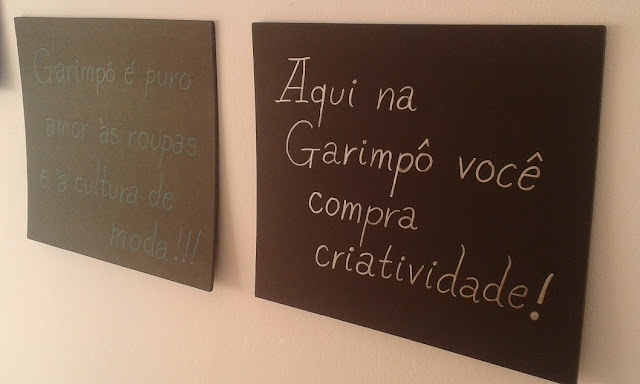 Garimpô é puro
amor às roupas
e à cultura de
moda!!!
Aqui na
Garimpô você
compra
criatividade!